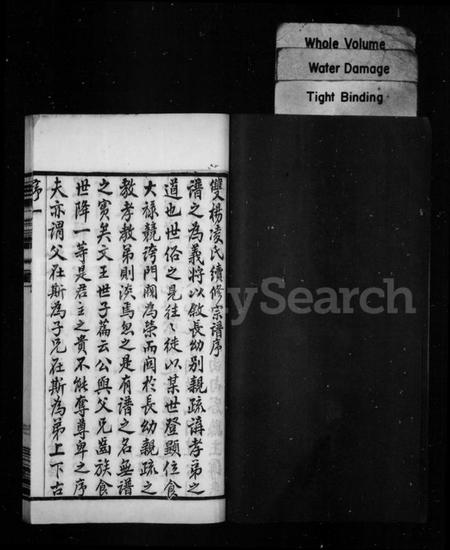 Whole Volume
Water Damage
Tight Binding
雙楊凌氏續修宗譜序
譜之為義將以敘長幼別親疏講孝弟之
道也世俗之見往〻徒以某世登顯位食
大祿競誇門閥為榮而闊於長幼親疏之
教孝教弟則淡焉忽之是有譜之名無譜
之實矣文王世子篇云公與父兄齒族食
世降一等是君主之貴不能奪尊卑之序
夫亦謂父在斯為子兄在斯為弟上下古
序一
FamilySearch